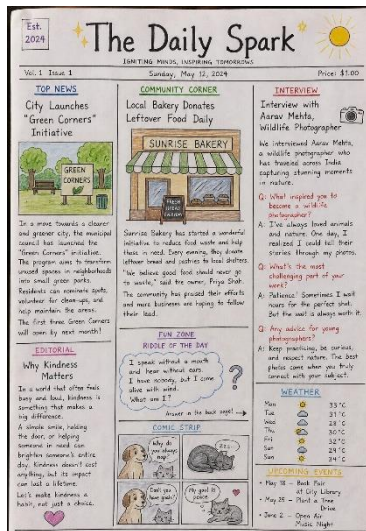 Est.
2024
The Daily Spark
IGNITING MINDS, INSPIRING TOMORROWS
Vol. 1 Issue 1
Sunday, May 12, 2024
Price: $1.00
TOP NEWS
City Launches
"Green Corners"
Initiative
GREEN
CORNERS
In a move towards a cleaner
and greener city, the municipal
council has launched the
"Green Corners" initiative.
The program aims to transform
unused spaces in neighborhoods
into small green parks.
Residents can nominate spots,
volunteer for clean-ups, and
help maintain the areas.
The first three Green Corners
will open by next month!
EDITORIAL
Why Kindness
Matters
In a world that often feels
busy and loud, kindness is
something that makes a
big difference.
A simple smile, holding
the door, or helping
someone in need can
brighten someone's entire
day. Kindness doesn't cost
anything, but its impact
can last a lifetime.
Let's make kindness a
habit, not just a choice.
COMMUNITY CORNER
Local Bakery Donates
Leftover Food Daily
SUNRISE BAKERY
Sunrise Bakery has started a wonderful
initiative to reduce food waste and help
those in need. Every evening, they donate
leftover bread and pastries to local shelters.
"We believe good food should never go
to waste," said the owner, Priya Shah.
The community has praised their efforts
and more businesses are hoping to follow
their lead.
FUN ZONE
RIDDLE OF THE DAY
I speak without a mouth
and hear without ears.
I have nobody, but I come
alive with wind.
What am I?
?
Answer in the back page!
COMIC STRIP
Why do
you always
nap?
Zzz...
Don't you
have goals?
My goal is
INTERVIEW
Interview with
Aarav Mehta,
Wildlife Photographer
We interviewed Aarav Mehta,
a wildlife photographer who
has traveled across India
capturing stunning moments
in nature.
Q: What inspired you to
become a wildlife
photographer?
A: I've always loved animals
and nature. One day, I
realized I could tell their
stories through my photos.
Q: What's the most
challenging part of your
work?
A: Patience! Sometimes I wait
hours for the perfect shot.
But the wait is always worth it.
Q: Any advice for young
photographers?
A: Keep practicing, be curious,
and respect nature. The best
photos come when you truly
connect with your subject.
WEATHER
Mon 33°C
Tue 31°C
Wed 28°C
Thu 30°C
Fri 32°C
Sat 29°C
Sun 34°C
UPCOMING EVENTS
• May 18 - Book Fair
at City Library
• May 25 - Plant a Tree
Drive
• June 2 - Open Air
Music Night